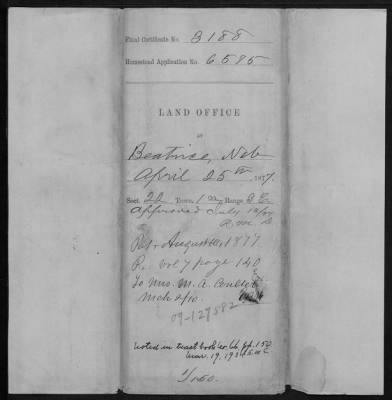 Final Certificate No. 3188
Homestead Application No. 6585
LAND OFFICE
at
Beatrice, Neb
April 25th, 1877.
Sect. 22 Town. 1 Range 3 E
Approved July
Pat. August 10, 1877
R. vol 7 page 140
To Mrs. M. A.
09-127582
noted in tract book pp. 152
Mar. 19, 193